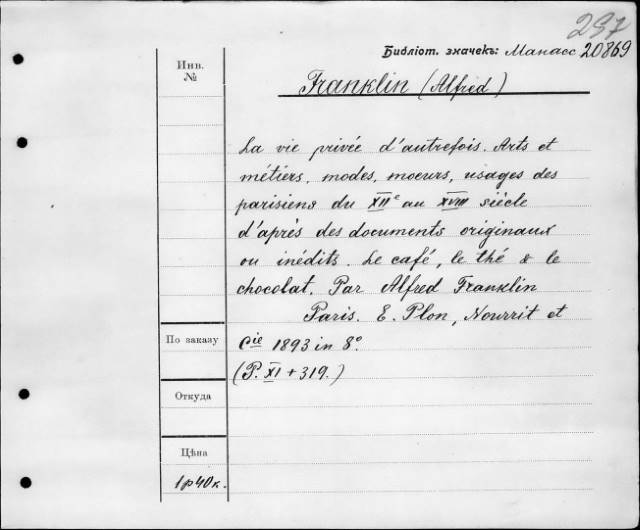 237
Библіот. значекъ: Манасс 20869
Инв.
№
Franklin (Alfred)
La vie privée d'autrefois. Arts et
métiers, modes, moeurs, usages des
parisiens du XIIe au XVIII siècle
d'après des documents originaux
ou inédits. Le café, le thé & le
chocolat. Par Alfred Franklin
Paris. E. Plon, Nourrit et
По заказу
Cie 1893 in 8º.
(P. XI + 319.)
Откуда
Цѣна
1 р 40 к.